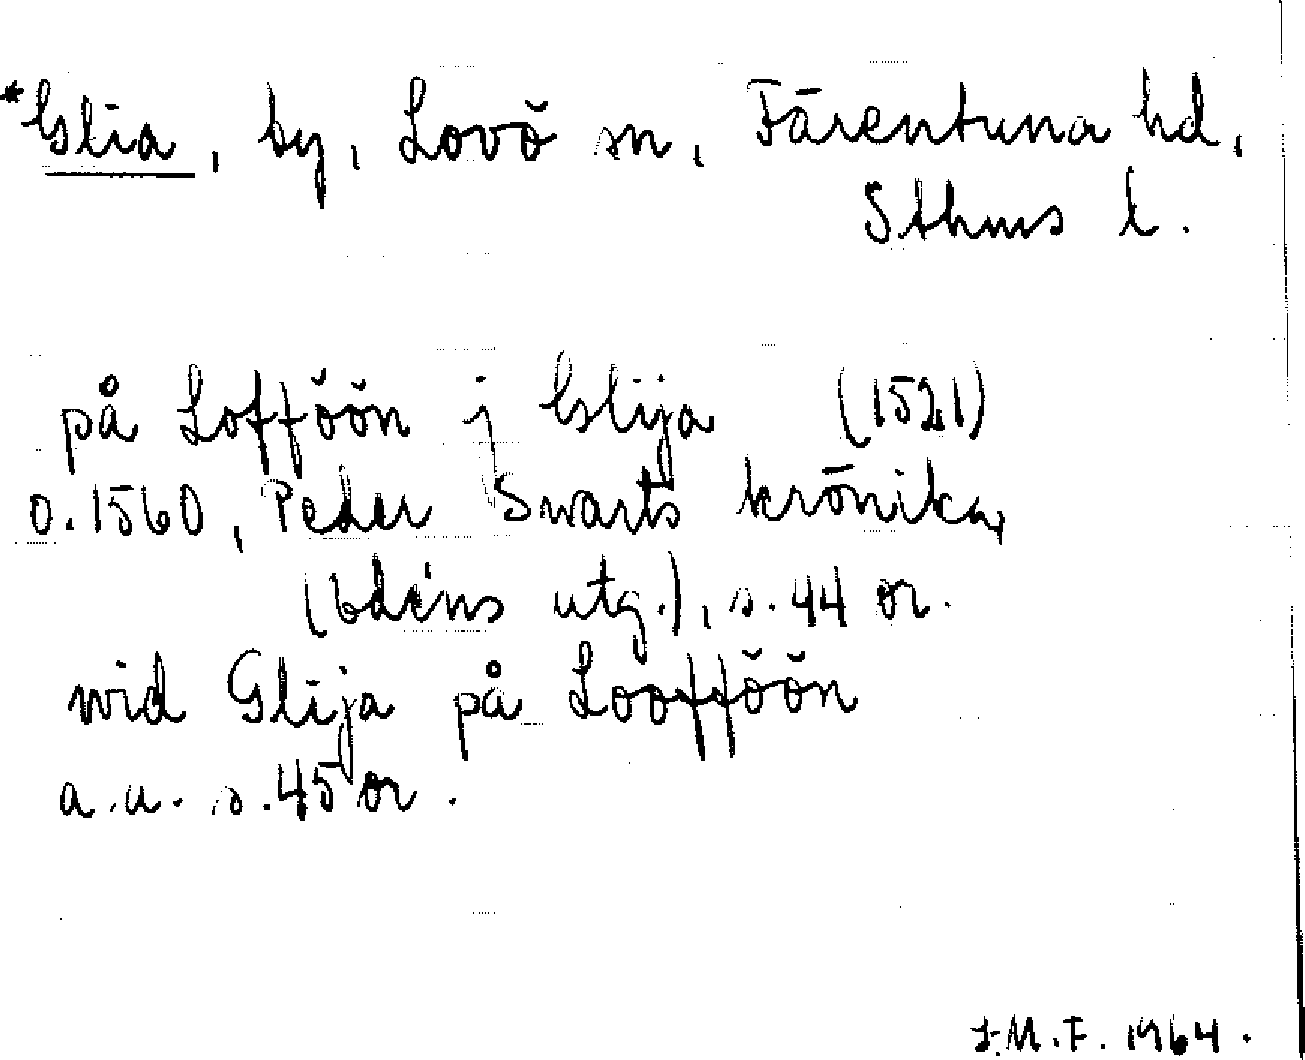 *Glia, by, Lovö sn, Färentuna hd,
Sthms l.
på Lofföön j Glija (1521)
o. 1560, Peder Swarts krönika,
(Edéns utg.), s. 44 or.
wid Glija på Loofföön
a.a. s. 45 or.
I.M.F. 1964.